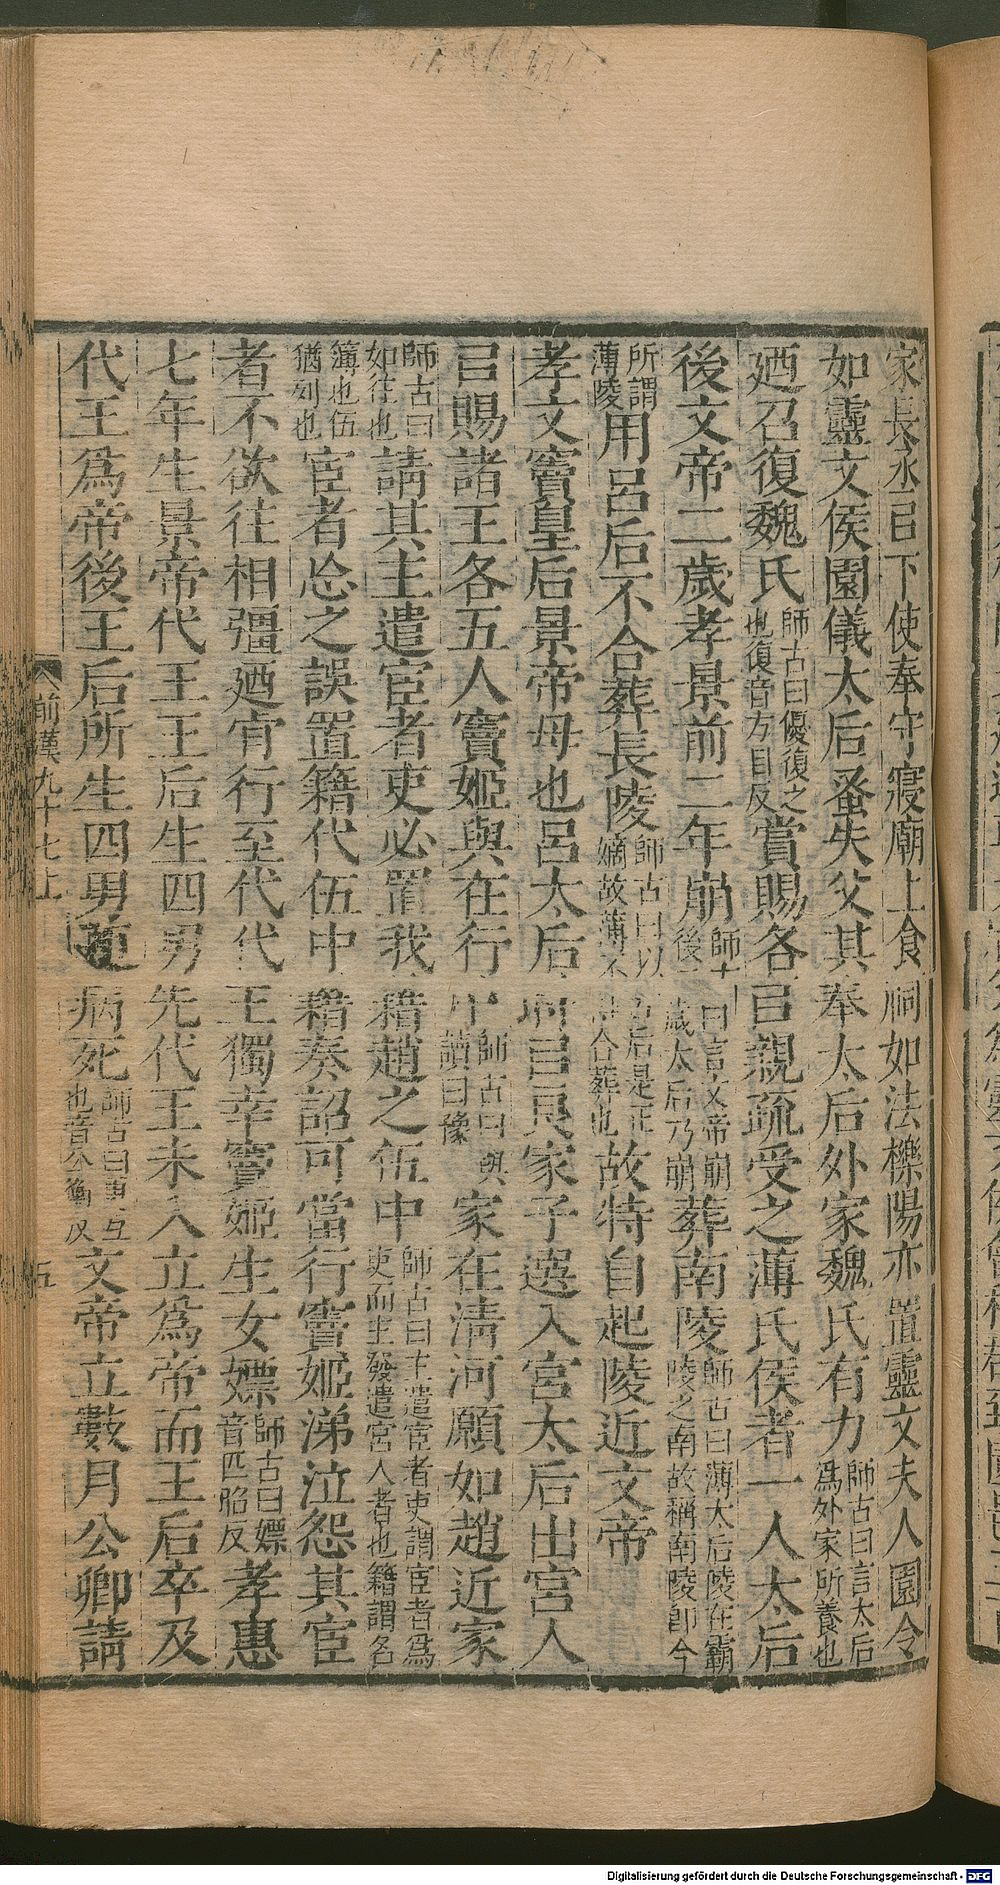 家長丞㠯下使奉守寢廟上食祠如法櫟陽亦置靈文夫人園令
如靈文侯園儀太后蚤失父其奉太后外家魏氏有力師古曰言太后爲外家所養也
廼召復魏氏師古曰優復之也復音方目反賞賜各㠯親疏受之薄氏侯者一人太后
後文帝二歲孝景前二年崩師古曰言文帝崩後二歲太后乃崩葬南陵師古曰薄太后陵在霸陵之南故稱南陵即今
所謂薄陵用呂后不合葬長陵師古曰以呂后是正嫡故薄不得合葬也故特自起陵近文帝
孝文竇皇后景帝母也呂太后時㠯良家子選入宮太后出宮人
㠯賜諸王各五人竇姬與在行中師古曰與讀曰豫家在清河願如趙近家
師古曰如往也請其主遣宦者吏必置我籍趙之伍中師古曰主遣宦者吏謂宦者爲吏而主發遣宮人者也籍謂名
簿也伍猶列也宦者忘之誤置籍代伍中籍奏詔可當行竇姬涕泣怨其宦
者不欲往相彊廼肯行至代代王獨幸竇姬生女嫖師古曰嫖音匹昭反孝惠
七年生景帝代王王后生四男先代王未入立爲帝而王后卒及
代王爲帝後王后所生四男更病死師古曰更互也音公衡反文帝立數月公卿請
前漢九十七上
五
Digitalisierung gefördert durch die Deutsche Forschungsgemeinschaft - DFG